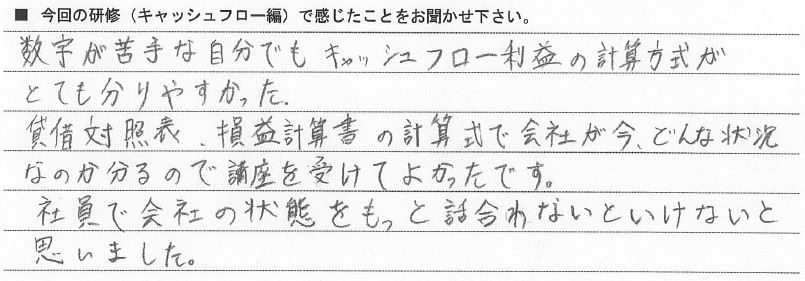 ■ 今回の研修（キャッシュフロー編）で感じたことをお聞かせ下さい。
数字が苦手な自分でもキャッシュフロー利益の計算方式が
とても分りやすかった.
貸借対照表、損益計算書の計算式で会社が今、どんな状況
なのか分るので講座を受けてよかったです。
社員で会社の状態をもっと話合わないといけないと
思いました。